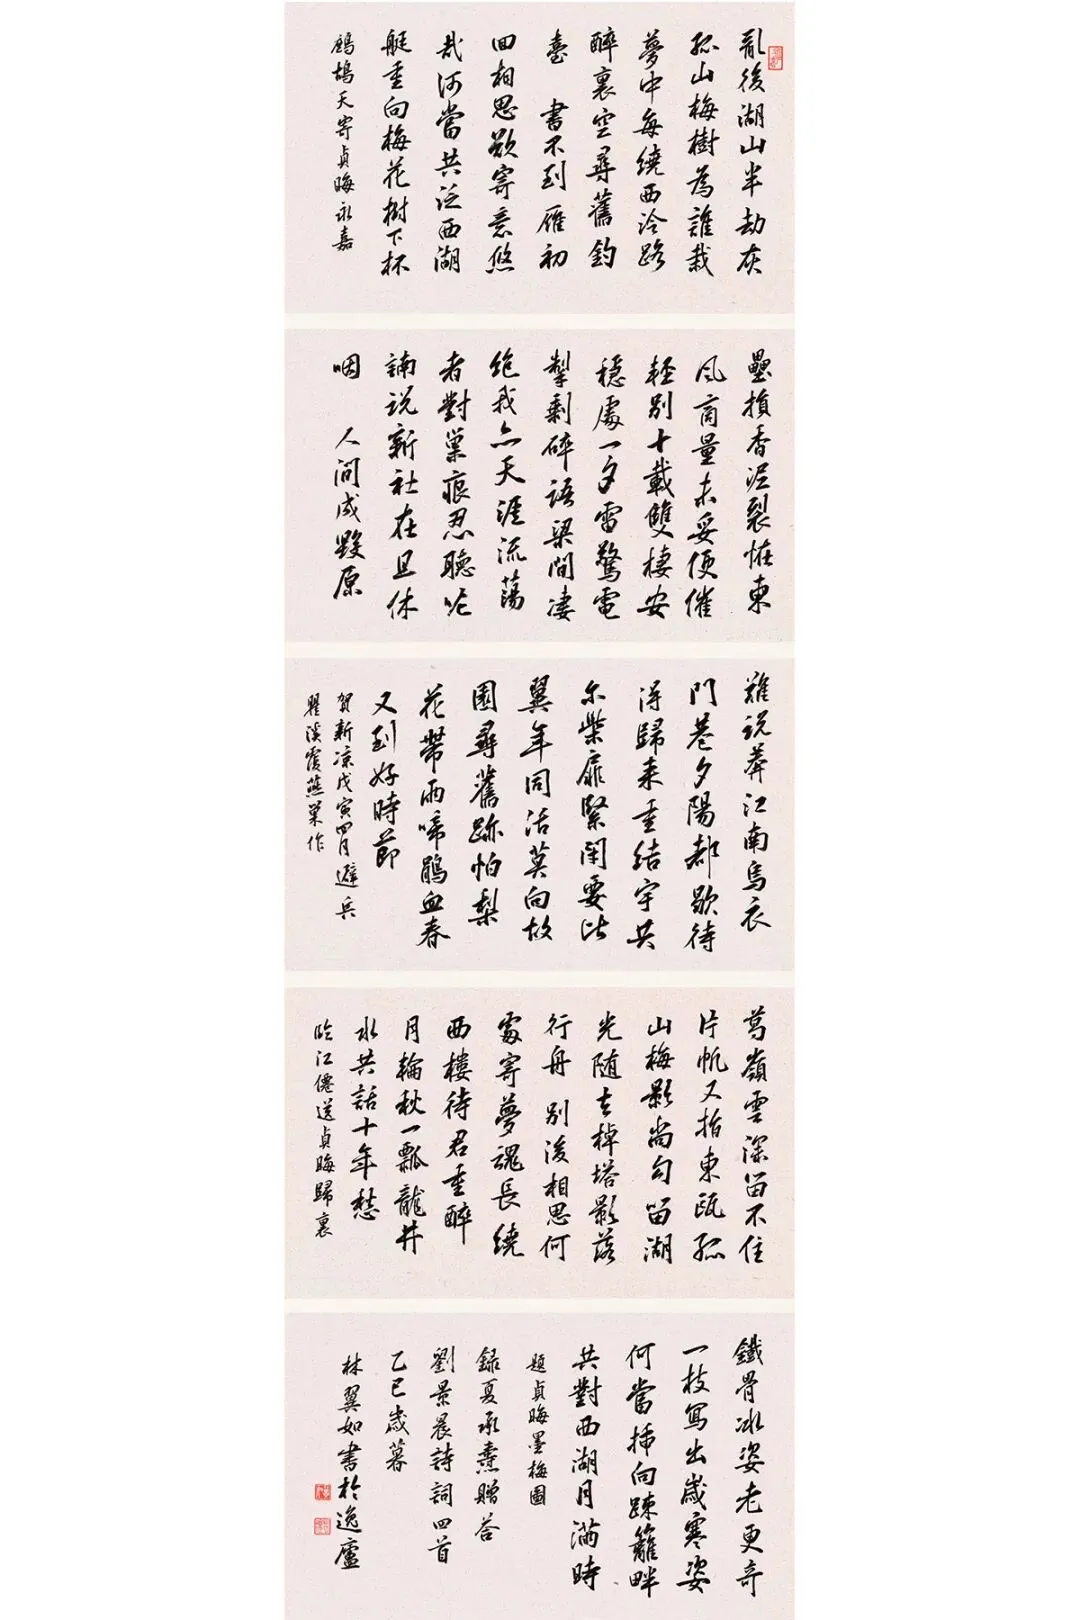 亂後湖山半劫灰
孤山梅樹為誰栽
夢中每繞西泠路
醉裏空尋舊釣
臺 書不到雁初
回相思欲寄意悠
哉何當共泛西湖
艇重向梅花樹下杯
鷓鴣天寄貞晦永嘉
壘損香泥裂恠東
風商量未妥便催
輕別十載雙棲安
穩處一夕雷驚電
掣剩碎語梁間淒
絶我亦天涯流蕩
者對巢痕忍聽呢
諵説新社在且休
咽 人間成毀原
難説莽江南烏衣
門巷夕陽都歇待
得歸來重結宇共
尔柴扉緊閉要比
翼年同活莫向故
園尋舊跡怕梨
花帶雨啼鵑血春
又到好時節
賀新凉戊寅四月避兵
瞿溪霞燕巢作
葛嶺雲深留不住
片帆又指東甌孤
山梅影尚勾留湖
光随去棹塔影落
行舟 别後相思何
處寄夢魂長繞
西樓待君重醉
月輪秋一瓢龍井
水共話十年愁
臨江僊送貞晦歸裏
鐵骨冰姿老更奇
一枝寫出歲寒姿
何當插向疎籬畔
共對西湖月滿時
題貞晦墨梅圖
録夏承燾贈答
劉景晨詩詞四首
乙巳歲暮
林翼如書於逸廬